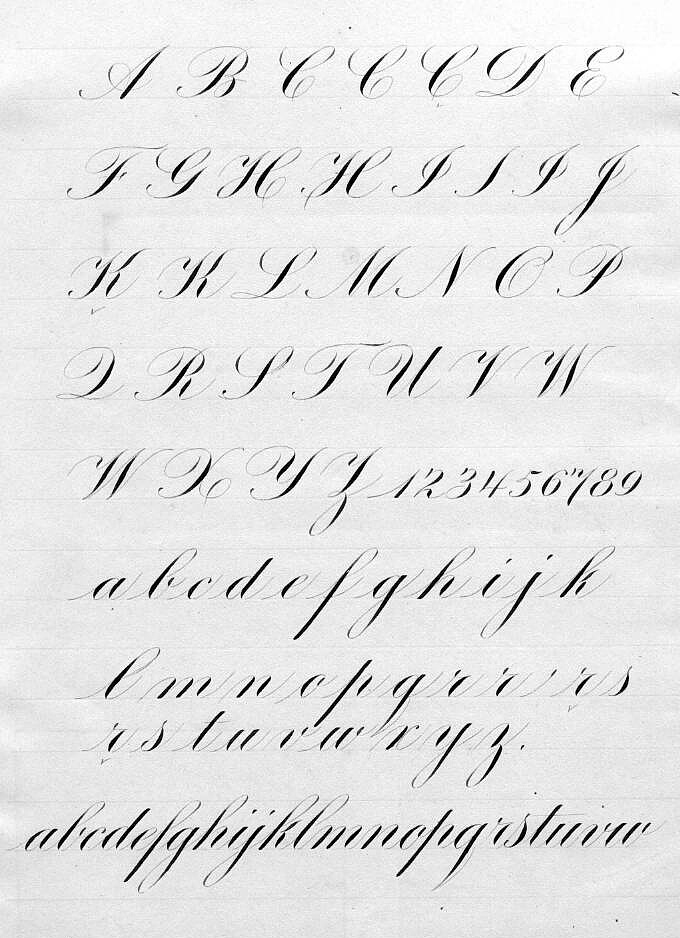 A B C C C D E
F G H H I I I J
K K L M N O P
Q R S T U V W
W X Y Z 123456789
a b c d e f g h i j k
l m n o p q r r r s
r s t u v w x y z.
abcdefghijklmnopqrstuvw